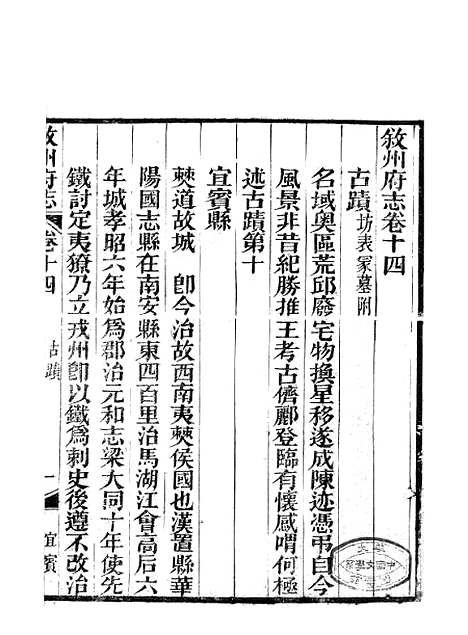 敘州府志卷十四
古蹟坊表冢墓附
名域奥區荒邱廢宅物換星移遂成陳迹憑弔自今
風景非昔紀勝推王考古儕酈登臨有懷感喟何極
述古蹟第十
宜賓縣
僰道故城 卽今治故西南夷僰侯國也漢置縣華
陽國志縣在南安縣東四百里治馬湖江會高后六
年城孝昭六年始爲郡治元和志梁大同十年使先
鐵討定夷獠乃立戎州卽以鐵爲刺史後遵不改治
敘州府志 卷十四 古蹟 一 宜賓